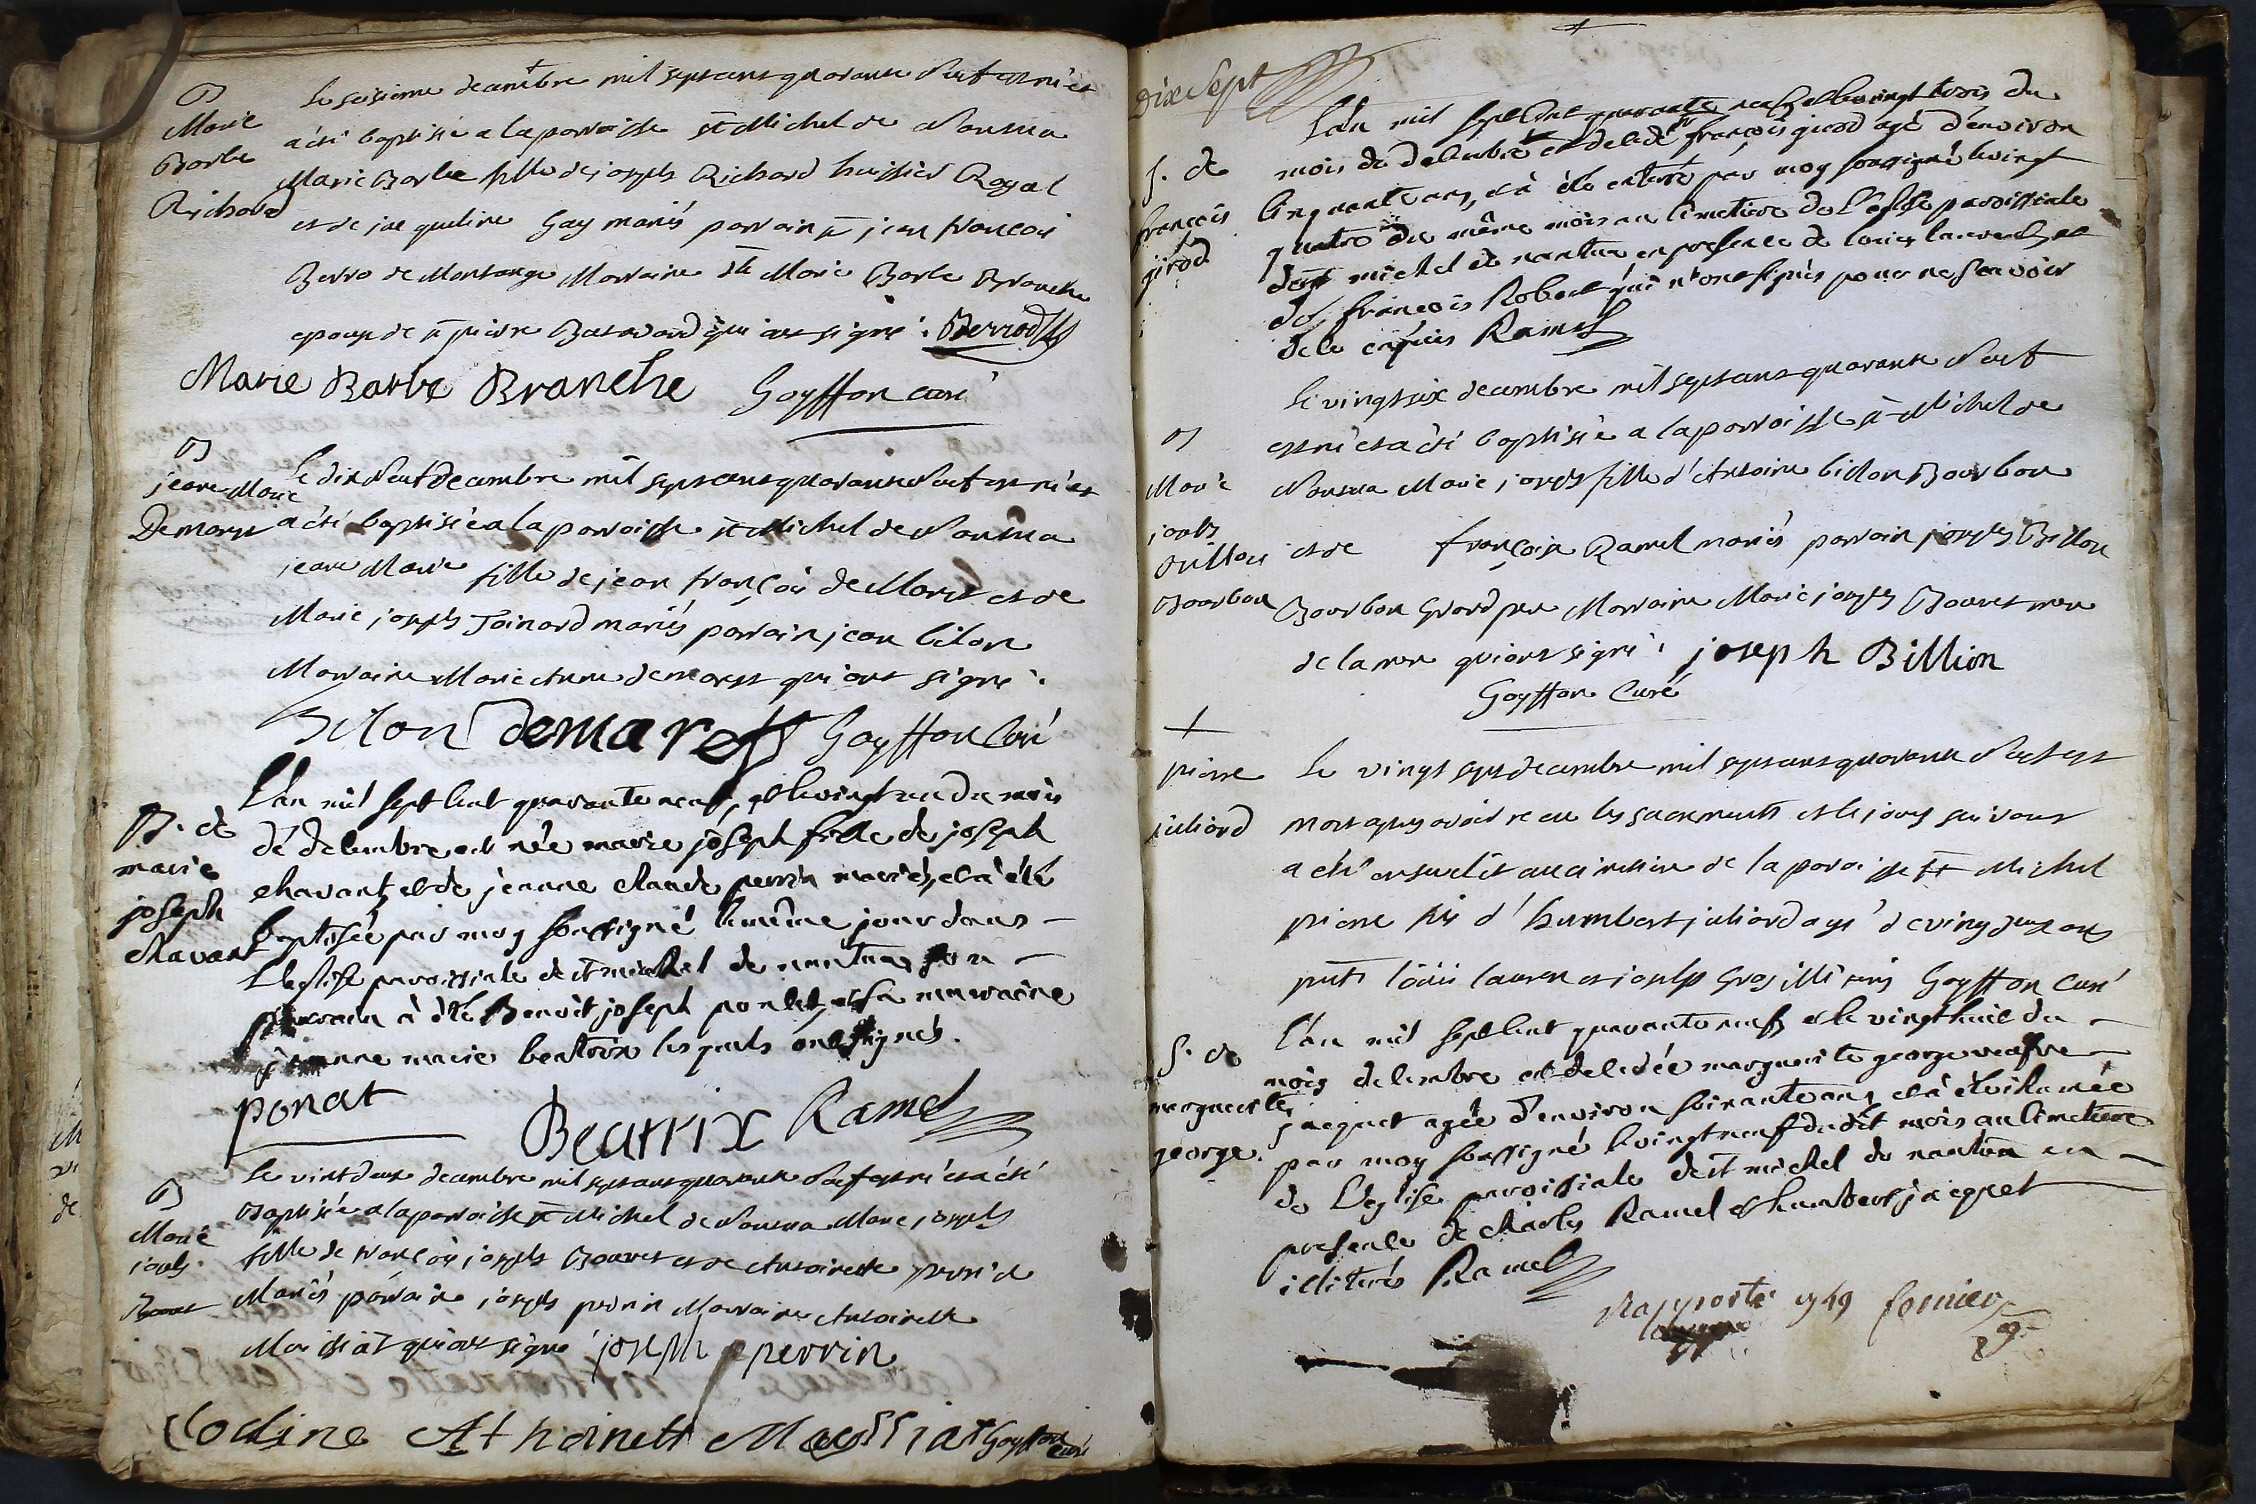 B
Marie
Barbe
Richard
Le seisieme decambre mil septcent quarante Neuf est née et
a été baptisée a la parroisse St Michel de Nantua
Marie Barbe fille de joseph Richard huissier Royal
et de jacqueline Gay mariés parrain Sr jean francois
Berro de Montange Marraine dlle Marie Barbe Branche
epouse de Sr pierre qui ont signé. Berrod
Marie Barbe Branche Goyffon curé
B
jeane Marie
Demarest
Le dix Neuf decambre mil septcent quarante Neuf est née et
a été baptisée a la parroisse St Michel de Nantua
jeane Marie fille de jean françois de Marest et de
Marie joseph Joinard mariés parrain jean bilon
Marraine Marie Anne demarest qui ont signé.
Bilon Demarest Goyffon Curé
B. de
marie
joseph
chavant
L'an mil sept cent quarante neuf, et le vingt un du mois
de decembre est née marie joseph fille de joseph
chavant, et de jeanne claude perrin mariés, et a été
baptisée par moy soussigné le même jour dans
L'eglise paroissiale de st michel de nantua son
parrain à été Benoit joseph ponat, et sa marraine
jeanne marie beatrix lesquels ont signés.
ponat Beatrix Ramel
B
Marie
joseph
Bouvet
Le vint deux decambre mil septcent quarante Neuf est née et a été
Baptisée a la parroisse St Michel de Nantua Marie joseph
fille de françois joseph Bouvet et de Antoinette perrin
Mariés parrain joseph perrin Marraine Antoinette
Maissiat qui ont signé joseph perrin
Clodine Athoinett Maissiat Goyffon curé
Dix Sept
S. de
françois
girod
L'an mil sept cent quarante neuf et le vingt trois du
mois de decembre est decedé Sr françois girod agé d'environ
cinquante ans, et à été enterré par moy soussigné le vingt
quatre du même mois au cimetiere de L'eglise paroissiale
de st michel de nantua en presence de louis laurent et
de françois Robert qui n'ont signés pour ne sçavoir
de ce enquis Ramel
B
Marie
joseph
Billon
Bourbon
Le vingt six decambre mil septcent quarante Neuf
est née et a été baptisée a la parroisse St Michel de
Nantua Marie joseph fille d'Antoine billon Bourbon
et de françoise Ramel mariés parrain joseph Billon
Bourbon Grand pere Marraine Marie joseph Bouvet mere
de la mere qui ont signé. joseph Billion
Goyffon Curé
pierre
juliard
Le vingt sept decambre mil septcent quarante Neuf est
mort apres avoir receu les sacrements et le jour suivant
a été ensevelit au cimetiere de la paroisse St Michel
pierre fils d'humbert juliard agé de vingt deux ans
pnts loüis laurent et joseph Gros illiterés Goyffon Curé
S. de
marguerite
george.
L'an mil sept cent quarante neuf et le vingt huit du
mois decembre est decedée marguerite george veufve
jacquet agée d'environ soixante ans, et à été inhumée
par moy soussigné le vingt neuf dudit mois au cimetiere
de L'eglise paroissiale de st michel de nantua en
presence de charles Ramel et humbert jacquet
illiterés Ramel
Rapporté 1749